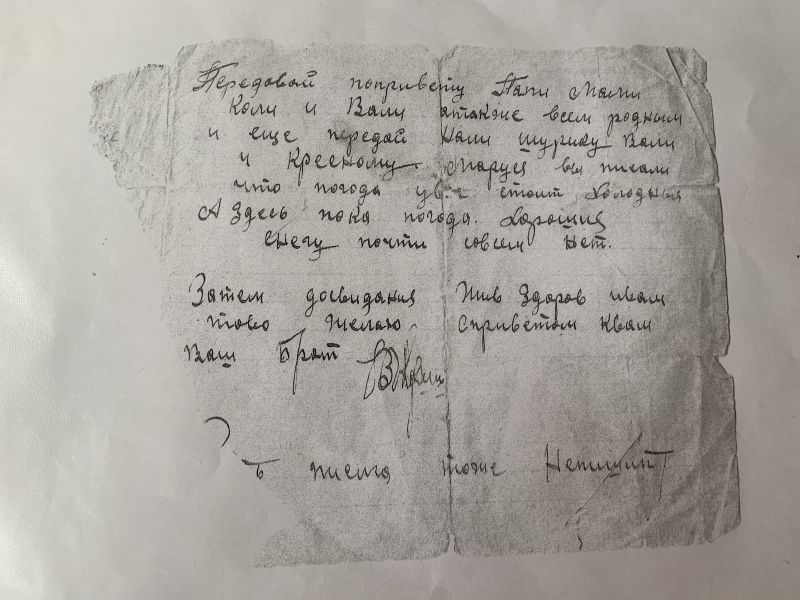 Передовай попривету Папи Мами
Коли и Вали атакже всем родным
и еще передай Нали шурику Вали
и Кресному. Маруся вы писали
что погода у в.с стоит холодныя
А Здесь пока погода. Хорошия
снегу почти совсем нет.
Затем досвидания Жив Здоров ивам
тово желаю. Сприветом Квам
Ваш Брат
ть писма тоже Непишит